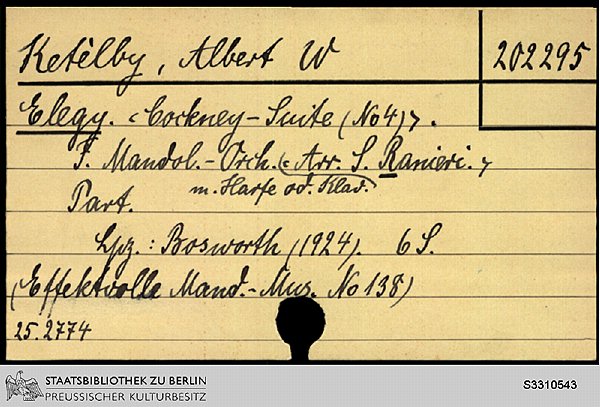 Ketèlby, Albert W
202295
Elegy. <Cockney-Suite (No 4)>.
F. Mandol.-Orch. <Arr. S. Ranieri.>
m. Harfe od. Klav.
Part.
Lpz.: Bosworth (1924). 6 S.
(Effektvolle Mand.-Mus. No 138)
25.2774
STAATSBIBLIOTHEK ZU BERLIN
PREUSSISCHER KULTURBESITZ
S3310543